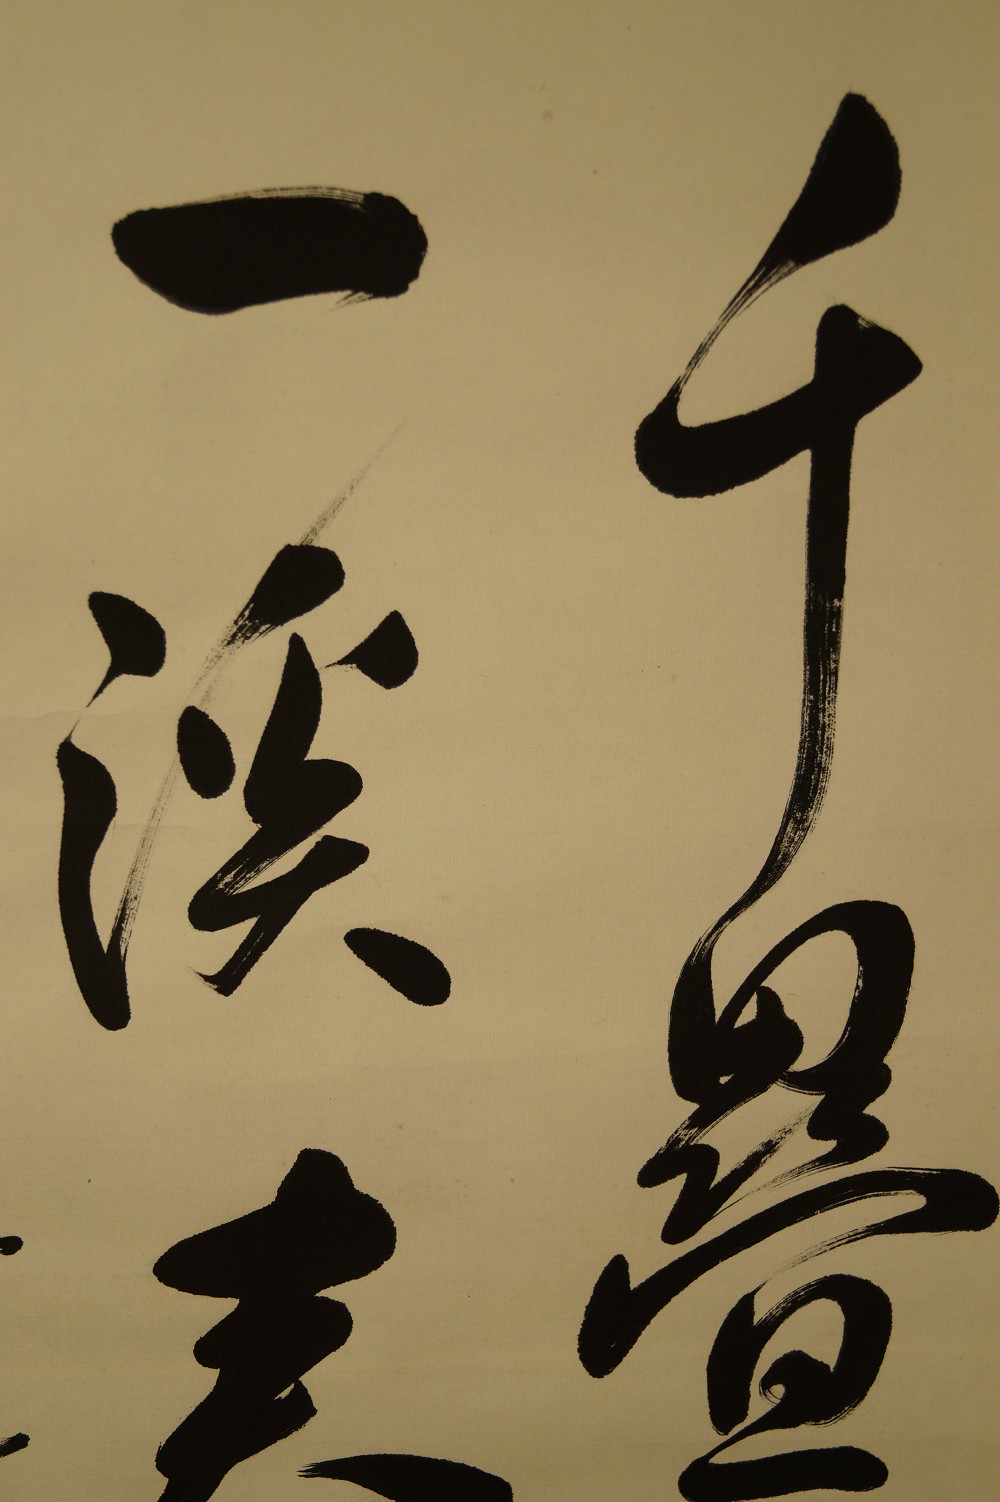 千疊
一溪春